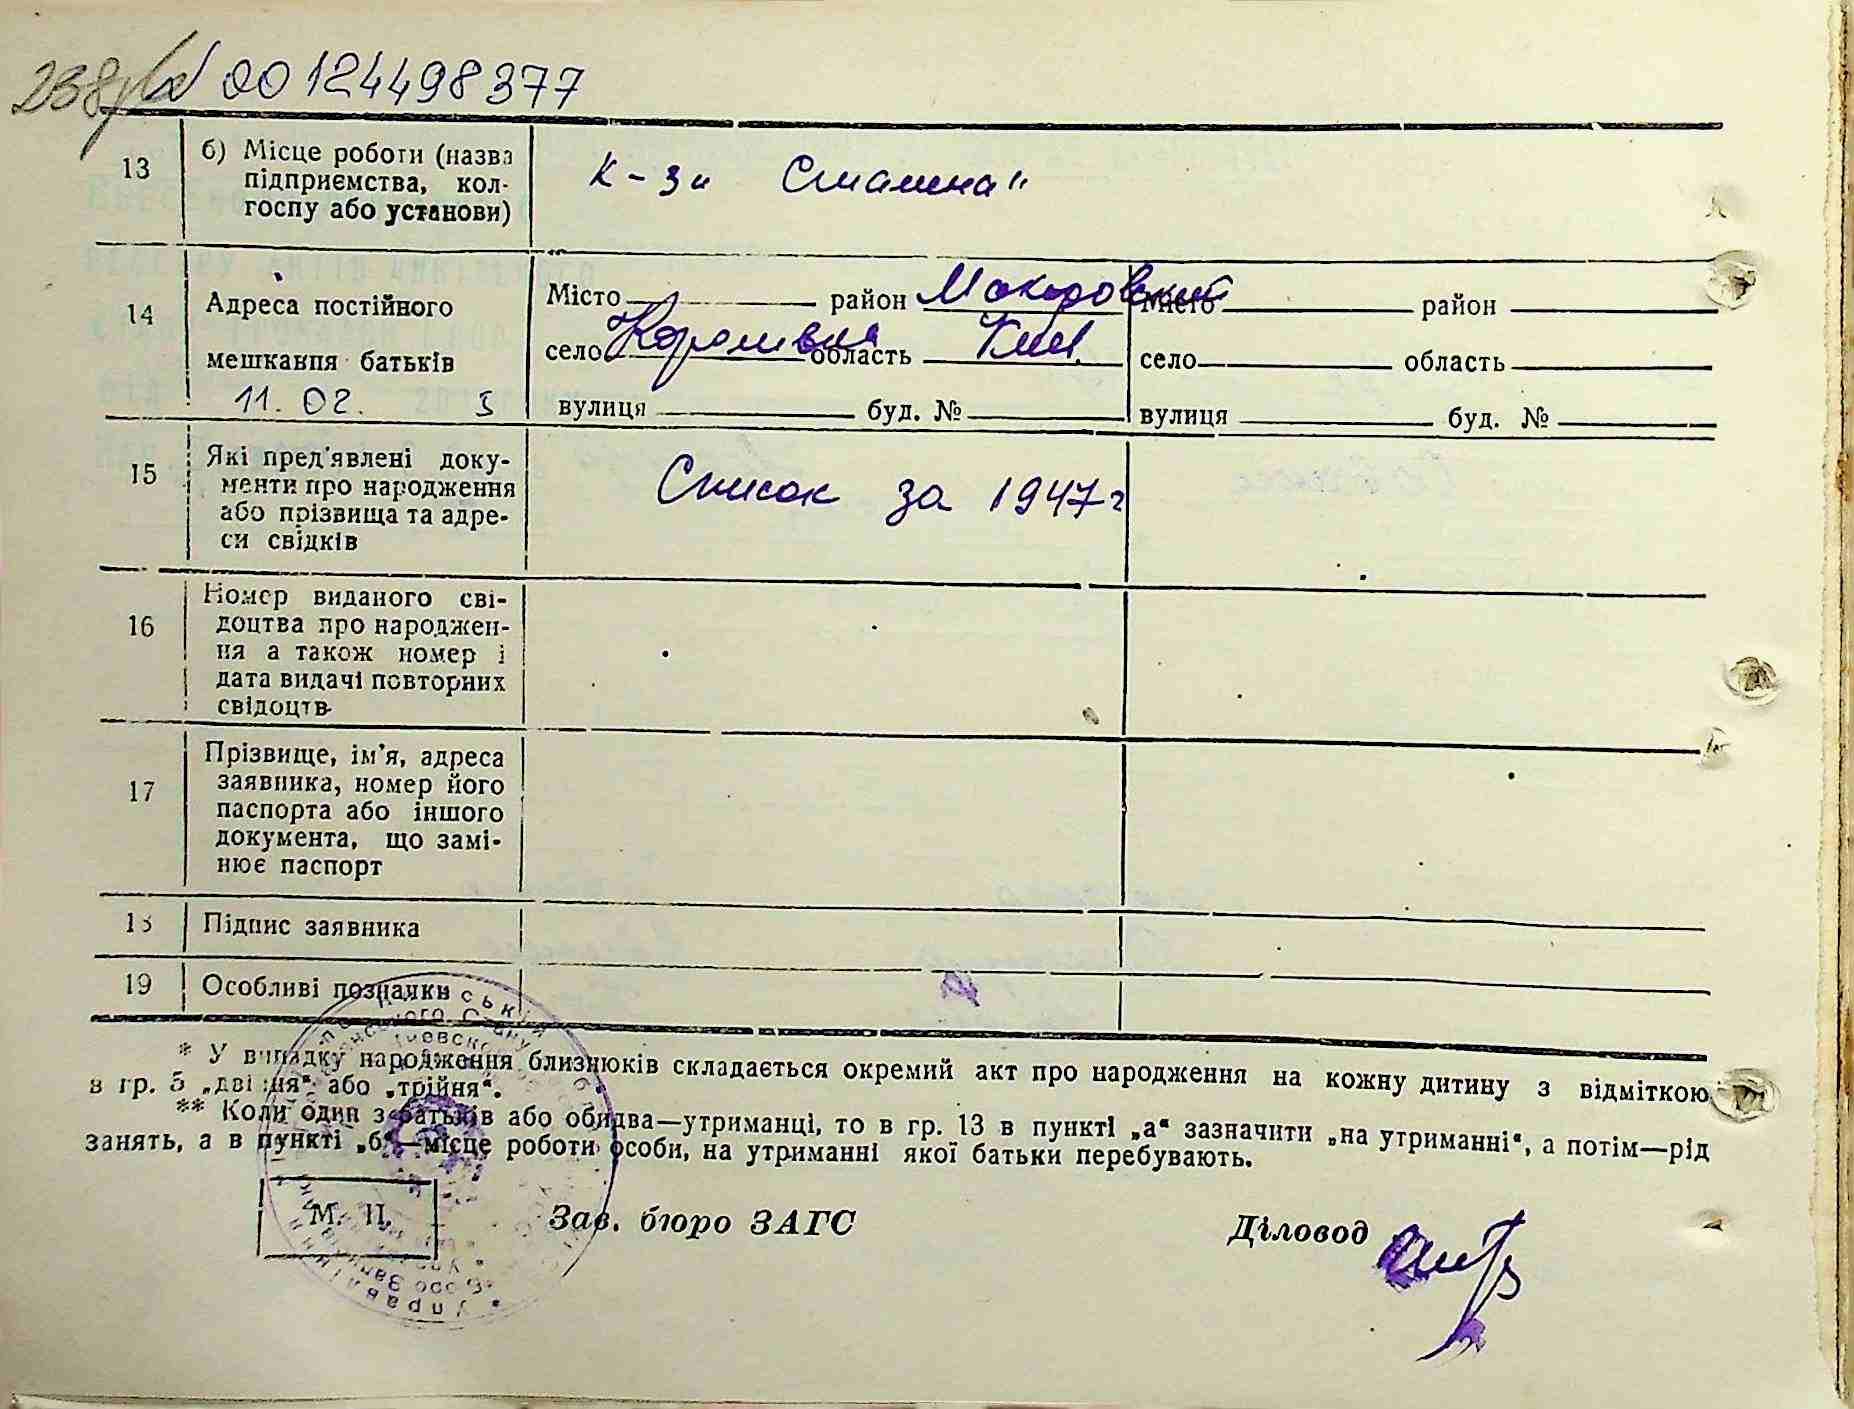 00124498377
13
б) Місце роботи (назва
підприємства, кол-
госпу або установи)
К-зи Сталина"
14
Адреса постійного
мешкання батьків
11. 02.
Місто район Макаровский
село Королівка область Київ.
вулиця буд. №
Місто район
село область
вулиця буд. №
15
Які пред'явлені доку-
менти про народження
або прізвища та адре-
си свідків
Список за 1947 г
16
Номер виданого сві-
доцтва про народжен-
ня а також номер і
дата видачі повторних
свідоцтв
17
Прізвище, ім'я, адреса
заявника, номер його
паспорта або іншого
документа, що замі-
нює паспорт
18
Підпис заявника
19
Особливі познаики
* У випадку народження близнюків складається окремий акт про народження на кожну дитину з відміткою
в гр. 5 „двійня“ або „трійня“.
** Коли один з батьків або обидва—утриманці, то в гр. 13 в пункті „а“ зазначити „на утриманні“, а потім—рід
занять, а в пункті „б“—місце роботи особи, на утриманні якої батьки перебувають.
М. П.
Зав. бюро ЗАГС
Діловод